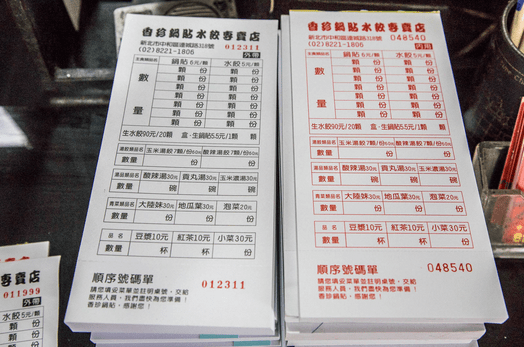 香珍鍋貼水餃專賣店
新北市中和區連城路318號
(02)8221-1806
012311
外帶
鍋貼5元/顆 水餃5元/顆
數量
顆 份 顆 份
顆 份 顆 份
顆 份 顆 份
顆 份 顆 份
顆 份 顆 份
顆 份 顆 份
生水餃90元/20顆 盒 生鍋貼5.5元/1顆 顆
玉米湯餃7顆/份 酸辣湯餃7顆/份
數量 份 份
酸辣湯30元 貢丸湯30元 玉米濃湯30元
數量 碗 碗 碗
大陸妹30元 地瓜葉30元 泡菜20元
數量 份 份 份
品名 豆漿10元 紅茶10元 小菜30元
數量 杯 杯 份
順序號碼單
012311
請您填妥菜單並註明桌號，交給
服務人員，我們盡快為您準備！
香珍鍋貼，感謝您！
香珍鍋貼水餃專賣店
新北市中和區連城路318號
(02)8221-1806
048540
內用
鍋貼5元/顆 水餃5元/顆
數量
顆 份 顆 份
顆 份 顆 份
顆 份 顆 份
顆 份 顆 份
顆 份 顆 份
顆 份 顆 份
生水餃90元/20顆 盒 生鍋貼5.5元/1顆 顆
玉米湯餃7顆/份50元 酸辣湯餃7顆/份50元
數量 份 份
酸辣湯30元 貢丸湯30元 玉米濃湯30元
數量 碗 碗 碗
大陸妹30元 地瓜葉30元 泡菜20元
數量 份 份 份
品名 豆漿10元 紅茶10元 小菜30元
數量 杯 杯 份
順序號碼單
048540
請您填妥菜單並註明桌號，交給
服務人員，我們盡快為您準備！
香珍鍋貼，感謝您！
專賣店
011999
外帶
水餃5元/顆
份 顆
份 顆
份 顆